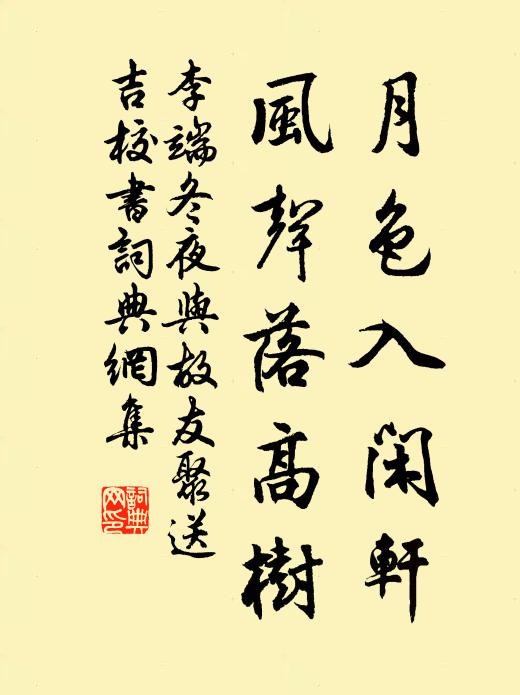 月色入閑軒
風聲落高樹
李端冬夜與故友聚送
吉校書詞典網集
詞典
網印